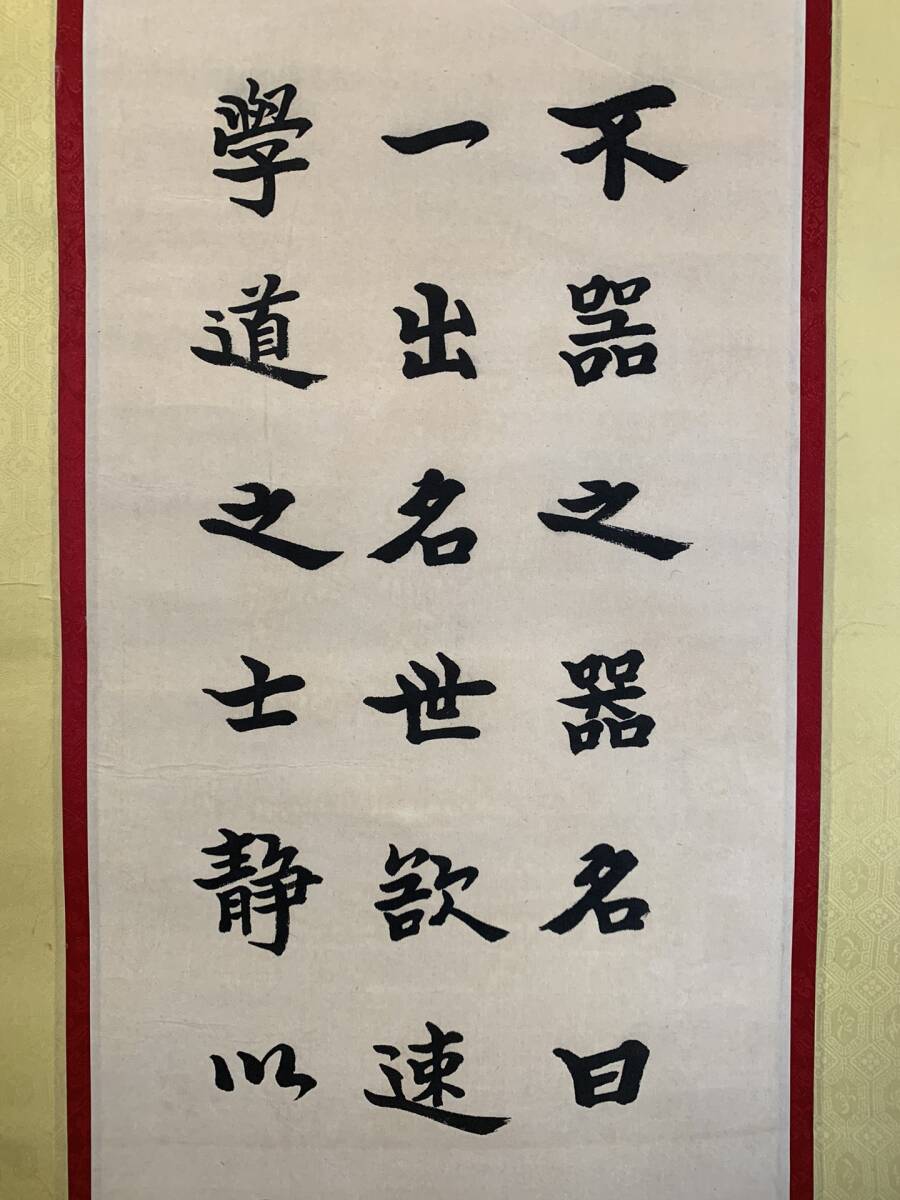 不器之器名曰
一出名世欲速
學道之士靜以